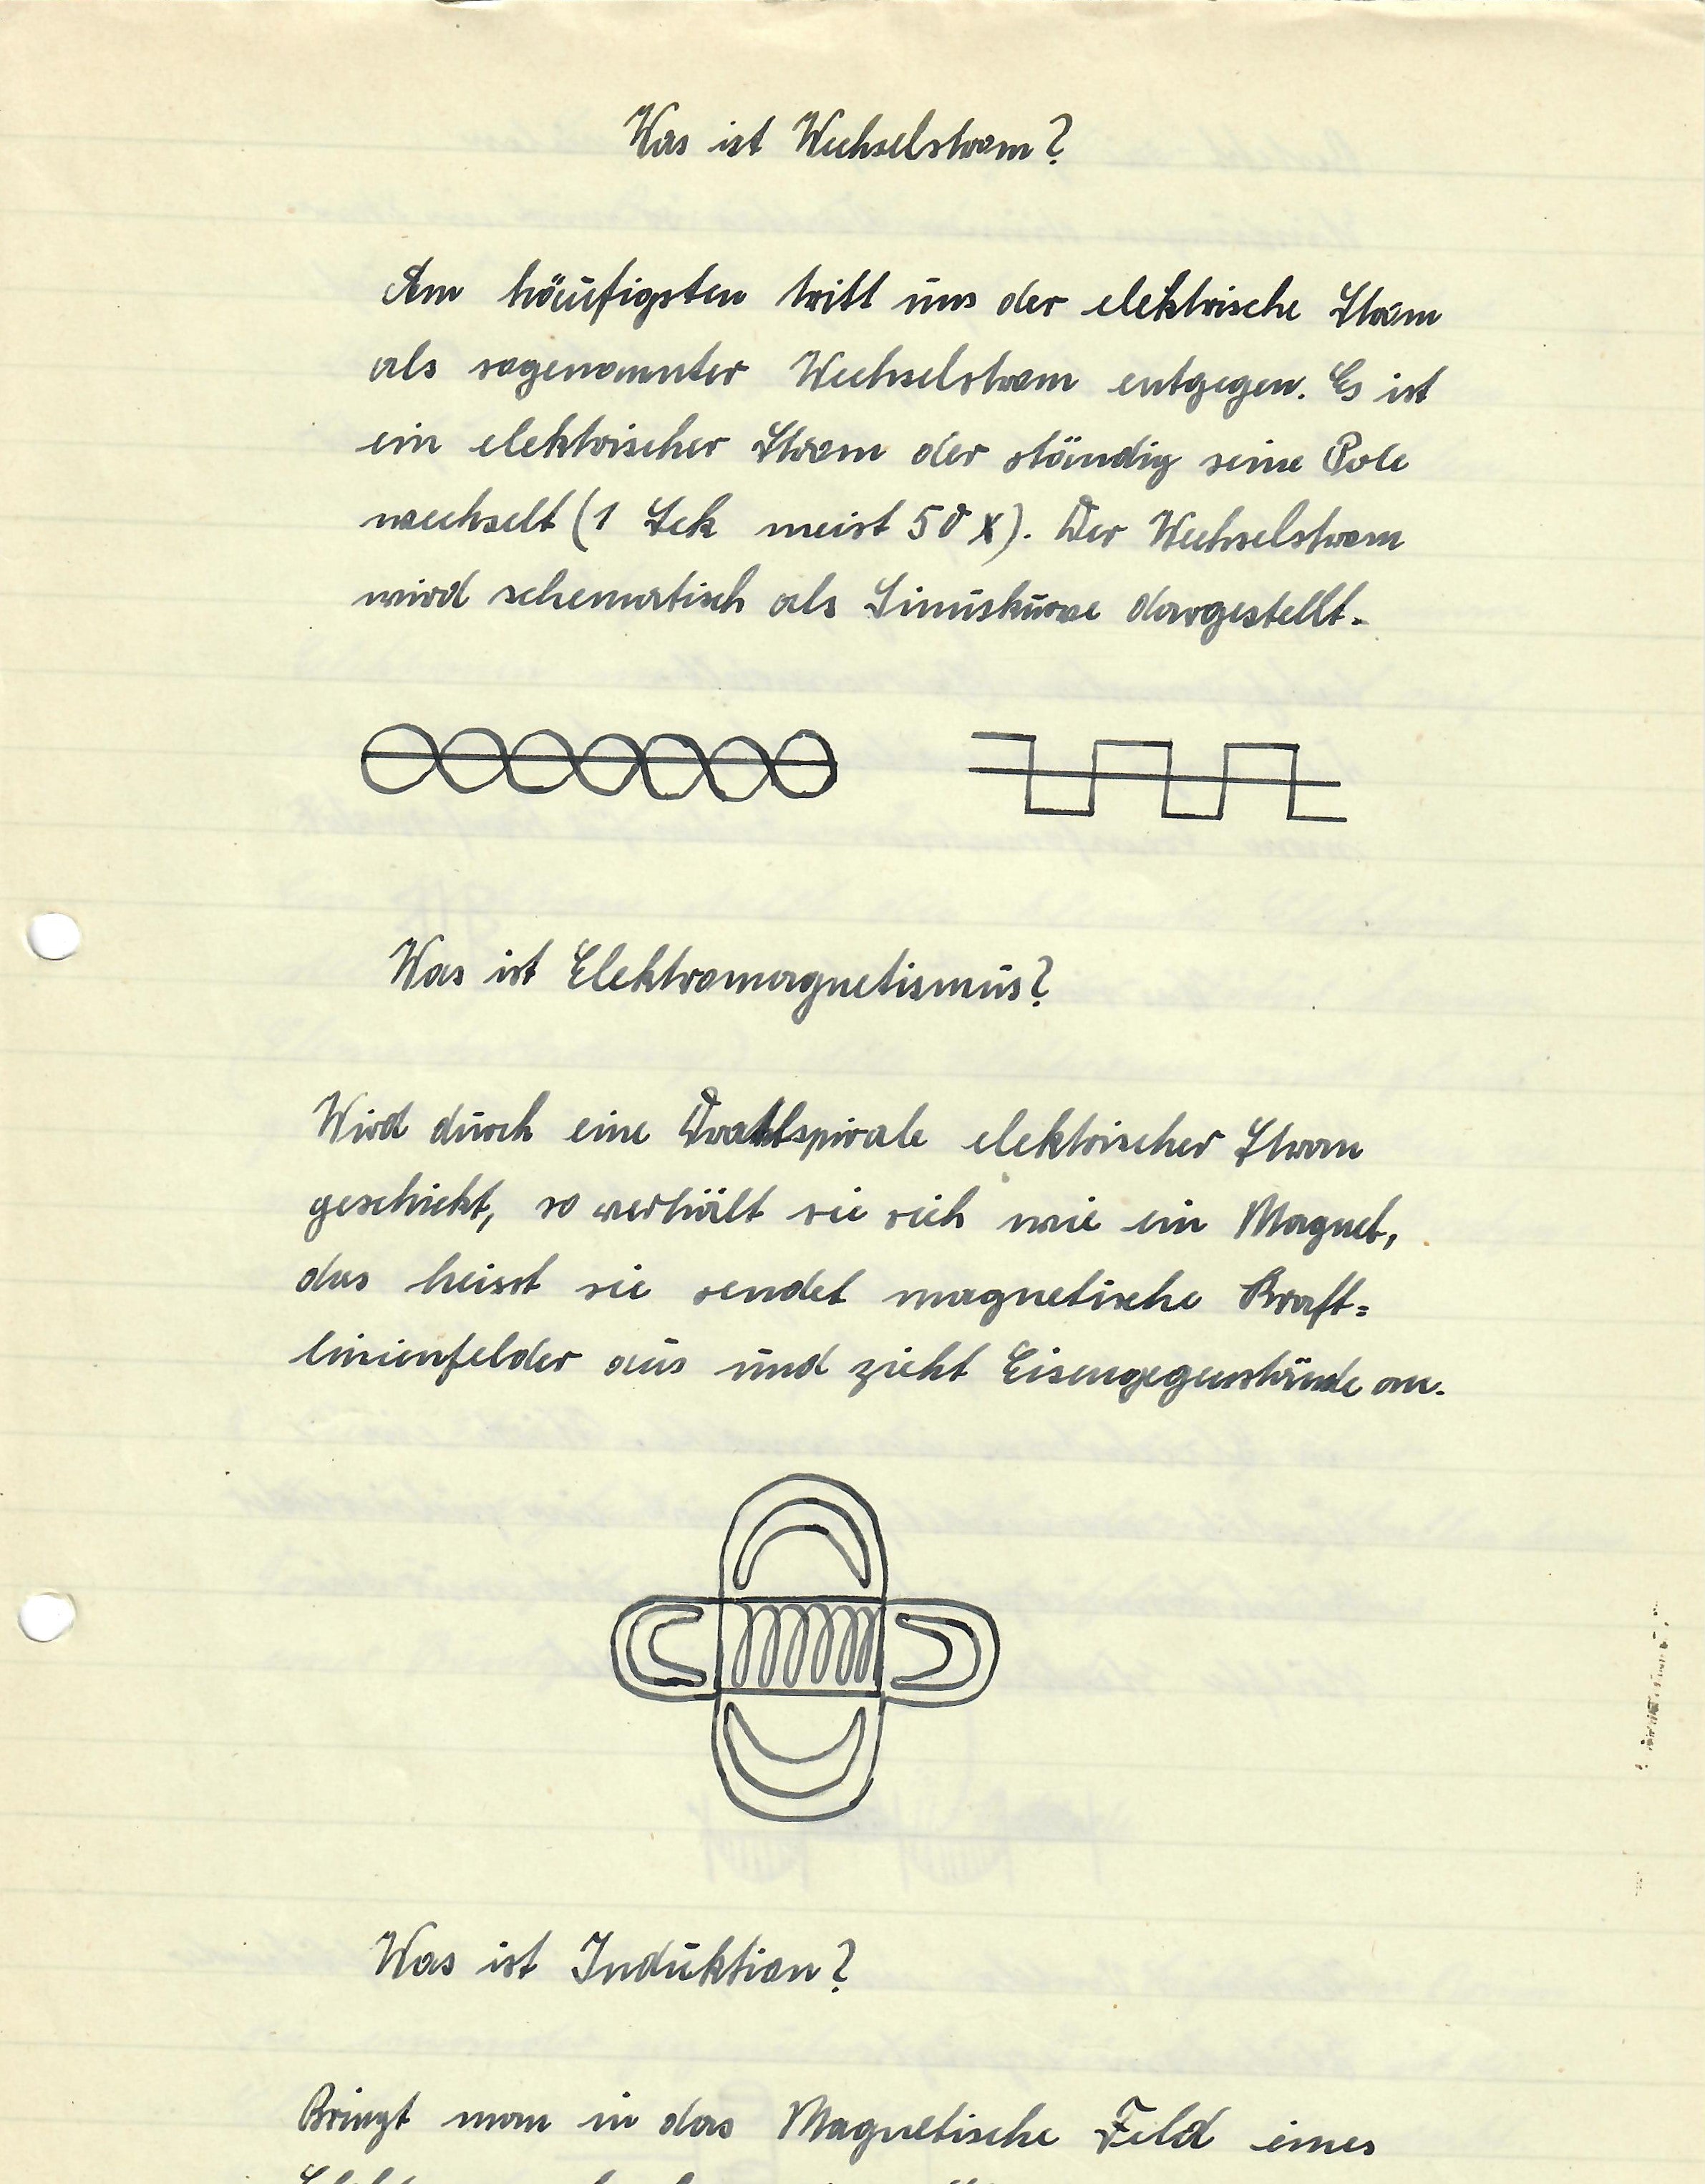 Was ist Wechselstrom?
Am häufigsten tritt uns der elektrische Strom
als sogenannter Wechselstrom entgegen. Es ist
ein elektrischer Strom der ständig seine Pole
wechselt (1 Sek meist 50 x). Der Wechselstrom
wird schematisch als Sinuskurve dargestellt.
Was ist Elektromagnetismus?
Wird durch eine Drahtspirale elektrischer Strom
geschickt, so verhält sie sich wie ein Magnet,
das heisst sie sendet magnetische Kraft=
linienfelder aus und zieht Eisengegenstände an.
Was ist Induktion?
Bringt man in das Magnetische Feld eines